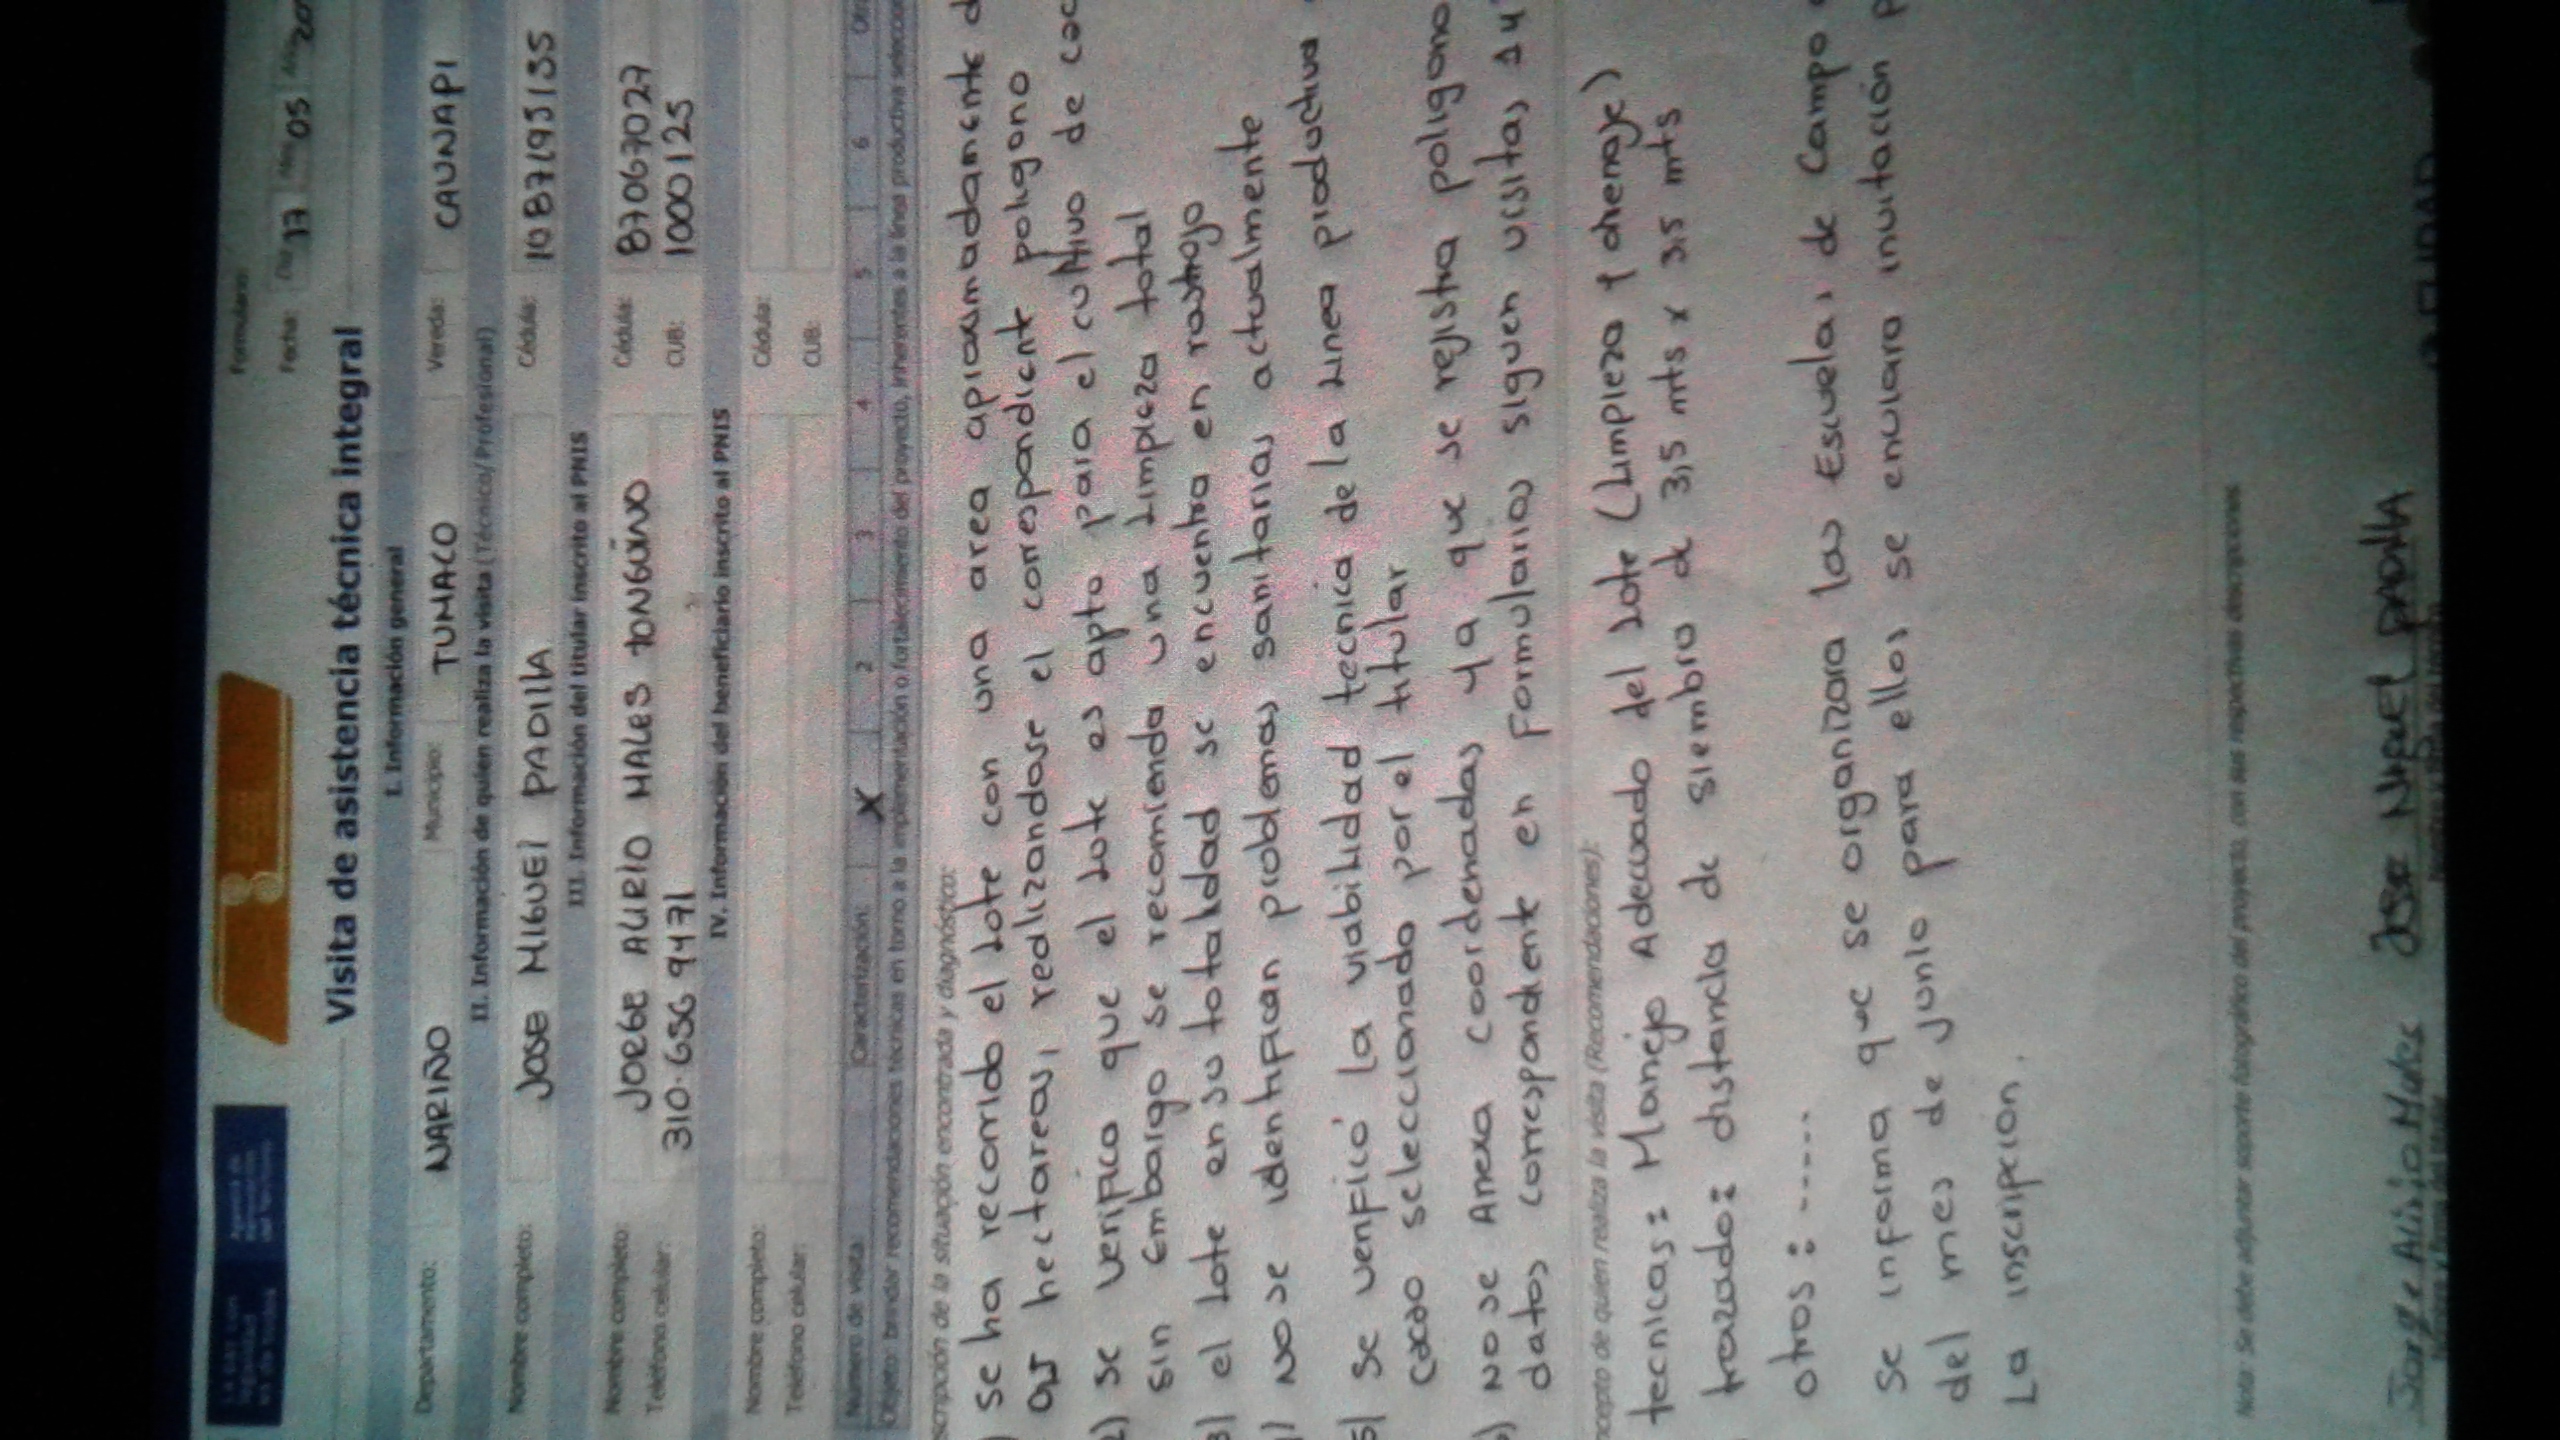 Formulario:
Fecha: Día 17 Mes 05 Año 20
Visita de asistencia técnica integral
I. Información general
Departamento: NARIÑO Municipio: TUMACO Vereda: CAUNAPI
II. Información de quien realiza la visita (Técnico/ Profesional)
Nombre completo: JOSE MIGUEL PADILLA Cédula: 1087195155
III. Información del titular inscrito al PNIS
Nombre completo: JORGE ALIRIO MALES TONGUINO Cédula: 87067027
Teléfono celular: 310.656 9471 CUB: 1000125
IV. Información del beneficiario inscrito al PNIS
Nombre completo: Cédula:
Teléfono celular: CUB:
Número de visita Caracterización: X 2 3 4 5 6
Objeto: brindar recomendaciones técnicas en torno a la implementación o fortalecimiento del proyecto, inherentes a la línea productiva
scripción de la situación encontrada y diagnóstico:
) se ha recorrido el Lote con una area aproximadamente
hectareas, realizandose el correspondiente poligono
2) se verifico que el Lote es apto para el cultivo de
sin Embargo se recomienda una Limpieza total
3) el Lote en su totalidad se encuentra en rastrojo
) No se identifican problemas sanitarios actualmente
5) se verificó la viabilidad tecnica de la Linea productiva
cacao seleccionado por el titular
) No se Anexa coordenadas ya que se registra poligono
datos correspondiente en Formularios siguen visitas
ncepto de quien realiza la visita (Recomendaciones):
tecnicas: Manejo Adecuado del Lote (Limpieza y drenaje)
trazado: distancia de siembra de 3,5 mts x 3,5 mts
otros: -----
se informa que se organizara las Escuelas de Campo
del mes de Junio para ellos se enviara invitación
La inscripcion.
Nota: Se debe adjuntar soporte fotográfico del proyecto, con sus respectivas descripciones
Jorge Alirio Males JOSE MIGUEL PADILLA